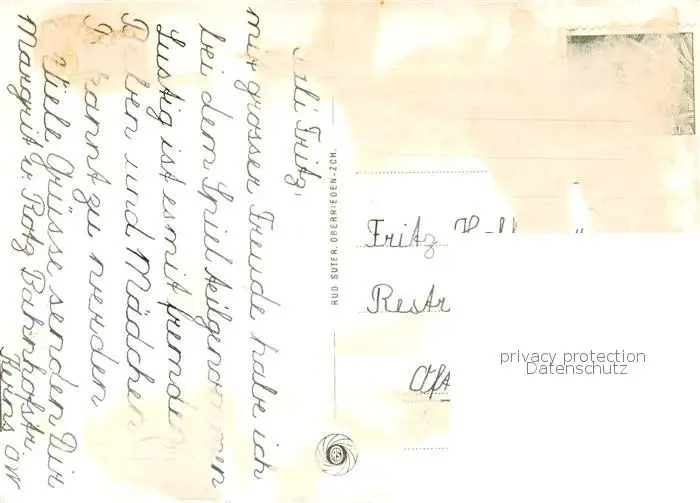 Fritz,
mir grosser Freude habe ich
bei dem Spiel teilgenommen
Lustig ist es mit fremden
ben und Mädchen
kannt zu werden
Viele Grüsse senden Dir
Margrit v. Rotz Bahnhofstr.
Kerns OW
RUD. SUTER, OBERRIEDEN-ZCH.
Fritz
Restr
privacy protection
Datenschutz